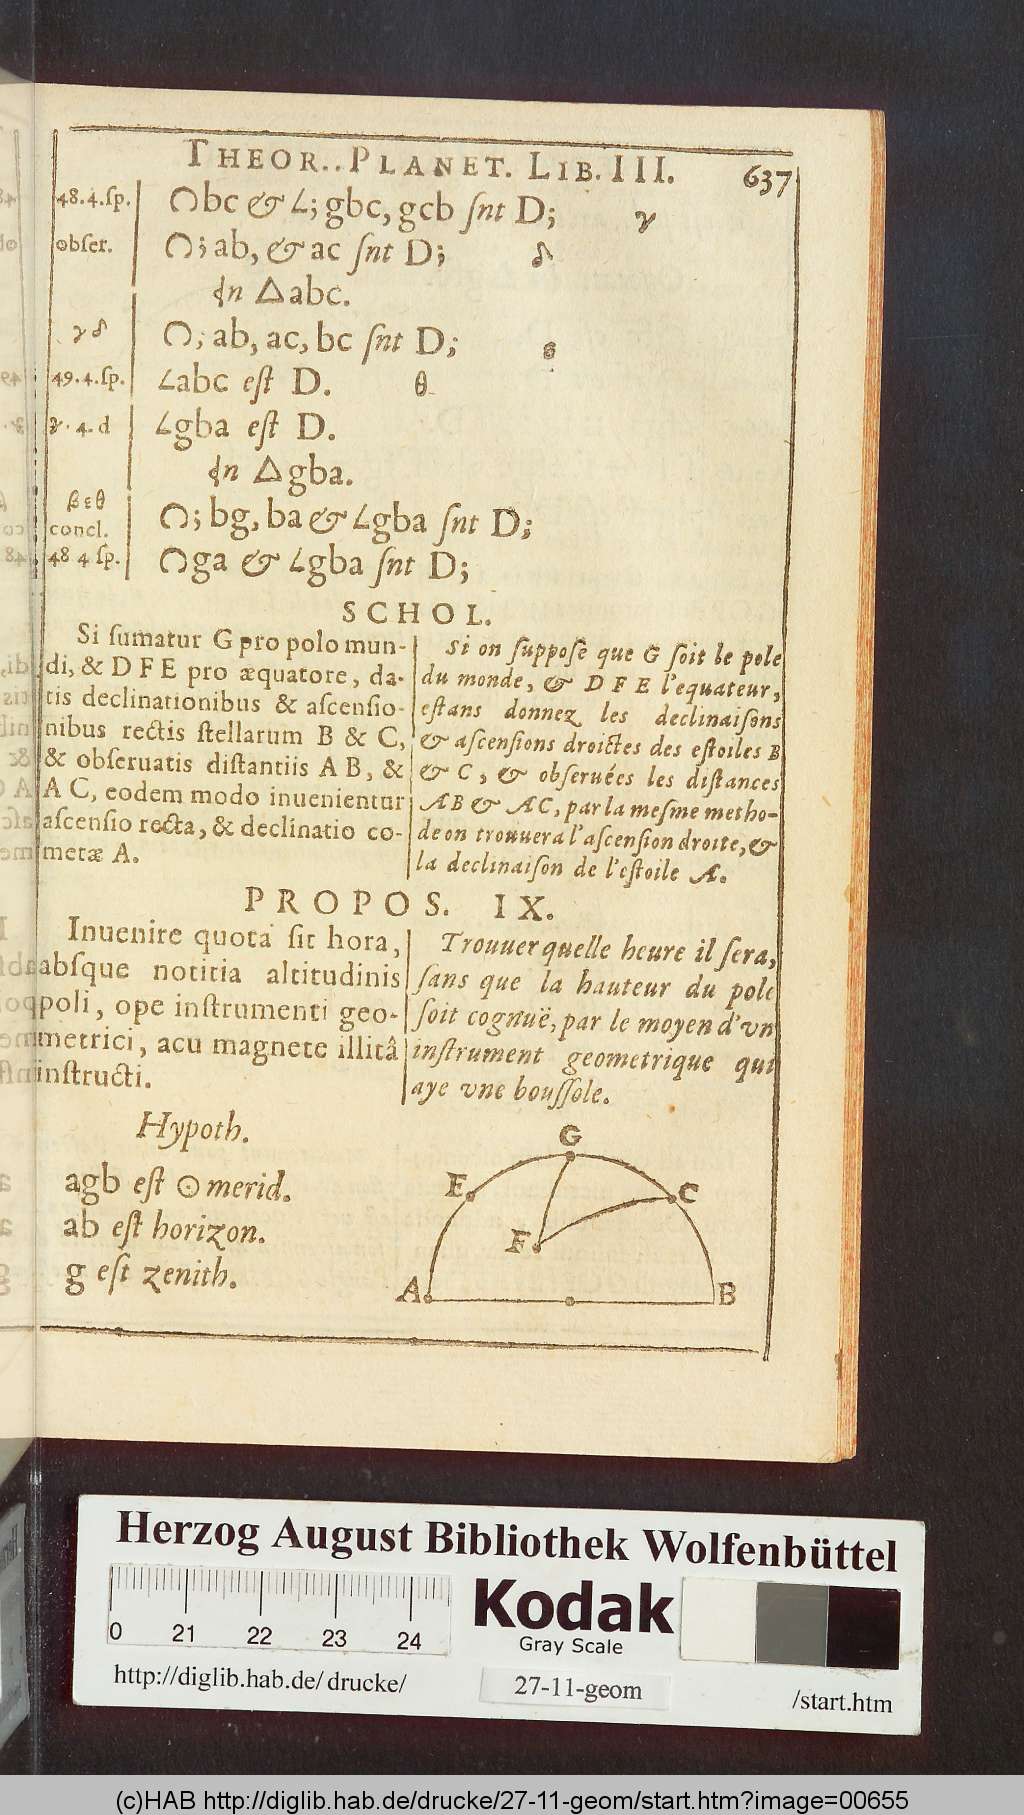 THEOR.. PLANET. LIB. III. 637
48.4.sp. ∩bc & ∠; gbc, gcb ſnt D; γ
obser. ∩; ab, & ac ſnt D; δ
In △abc.
γδ ∩; ab, ac, bc ſnt D; ε
49.4.sp. ∠abc eſt D. θ
4.d ∠gba eſt D.
In △gba.
βεθ
concl. ∩; bg, ba & ∠gba ſnt D;
48 4 ſp. ∩ga & ∠gba ſnt D;
SCHOL.
Si ſumatur G pro polo mun-
di, & D F E pro æquatore, da-
tis declinationibus & aſcenſio-
nibus rectis ſtellarum B & C,
& obſeruatis diſtantiis A B, &
A C, eodem modo inuenientur
aſcenſio recta, & declinatio co-
metæ A.
Si on ſuppoſe que G ſoit le pole
du monde, & D F E l'equateur,
eſtans donnez les declinaiſons
& aſcenſions droictes des eſtoiles B
& C, & obſeruées les diſtances
AB & AC, par la meſme metho-
de on trouuera l'aſcenſion droite, &
la declinaiſon de l'eſtoile A.
PROPOS. IX.
Inuenire quota ſit hora,
abſque notitia altitudinis
poli, ope inſtrumenti geo-
metrici, acu magnete illitâ
inſtructi.
Trouuer quelle heure il ſera,
ſans que la hauteur du pole
ſoit cognuë, par le moyen d'vn
inſtrument geometrique qui
aye vne bouſſole.
Hypoth.
agb eſt ⊙ merid.
ab eſt horizon.
g eſt zenith.
G
E
C
F
A
B
Herzog August Bibliothek Wolfenbüttel
0 21 22 23 24
Kodak
Gray Scale
http://diglib.hab.de/drucke/
27-11-geom
/start.htm
(c)HAB http://diglib.hab.de/drucke/27-11-geom/start.htm?image=00655